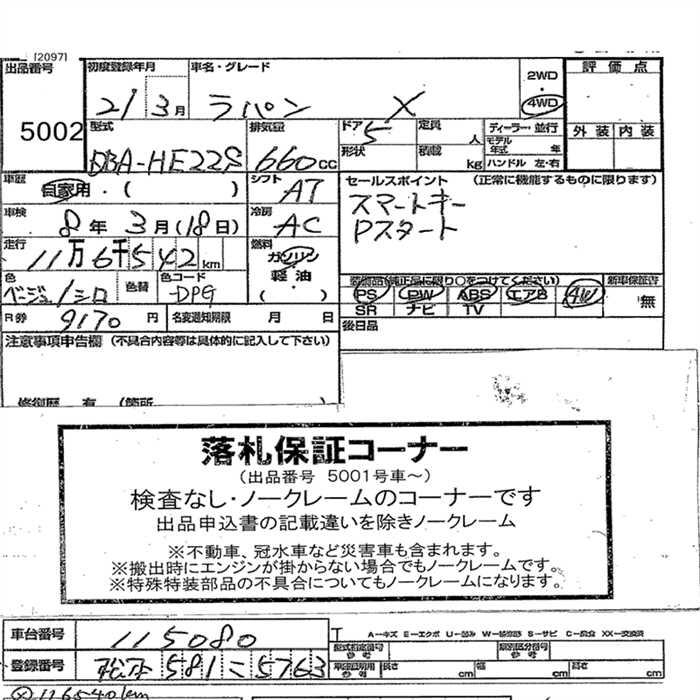 [2097]
出品番号 初度登録年月 車名・グレード 2WD・4WD 評価点
5002 21 3月 ラパン X 外装 内装
型式 排気量 ドア 定員 人 ディーラー・並行
DBA-HE22S 660cc 5 形状 積載 kg モデル年式 年 ハンドル 左・右
車歴 自家用・( ) シフト AT セールスポイント (正常に機能するものに限ります)
車検 8年 3月(18日) 冷房 AC スマートキー
Pスタート
走行 11万6千542km 燃料 ガソリン 軽油 ( )
色 ベージュ/シロ 色替 色コード -DPG 装備品(純正品に限り○をつけてください) 新車保証書
PS PW ABS エアB AW 無
SR ナビ TV
R券 9170円 名変通知期限 月 日 後日品
注意事項申告欄 (不具合内容等は具体的に記入して下さい)
修復歴 有 (箇所
落札保証コーナー
(出品番号 5001号車～)
検査なし・ノークレームのコーナーです
出品申込書の記載違いを除きノークレーム
※不動車、冠水車など災害車も含まれます。
※搬出時にエンジンが掛からない場合でもノークレームです。
※特殊特装部品の不具合についてもノークレームになります。
車台番号 115080 A―キズ E―エクボ U―凹み W―補修跡 S―サビ C―腐食 XX―交換済
型式指定番号 参考 類別区分番号 参考
登録番号 松本 581 に 5763 車両諸元 参考 長さ cm 幅 cm 高さ cm
※116540km